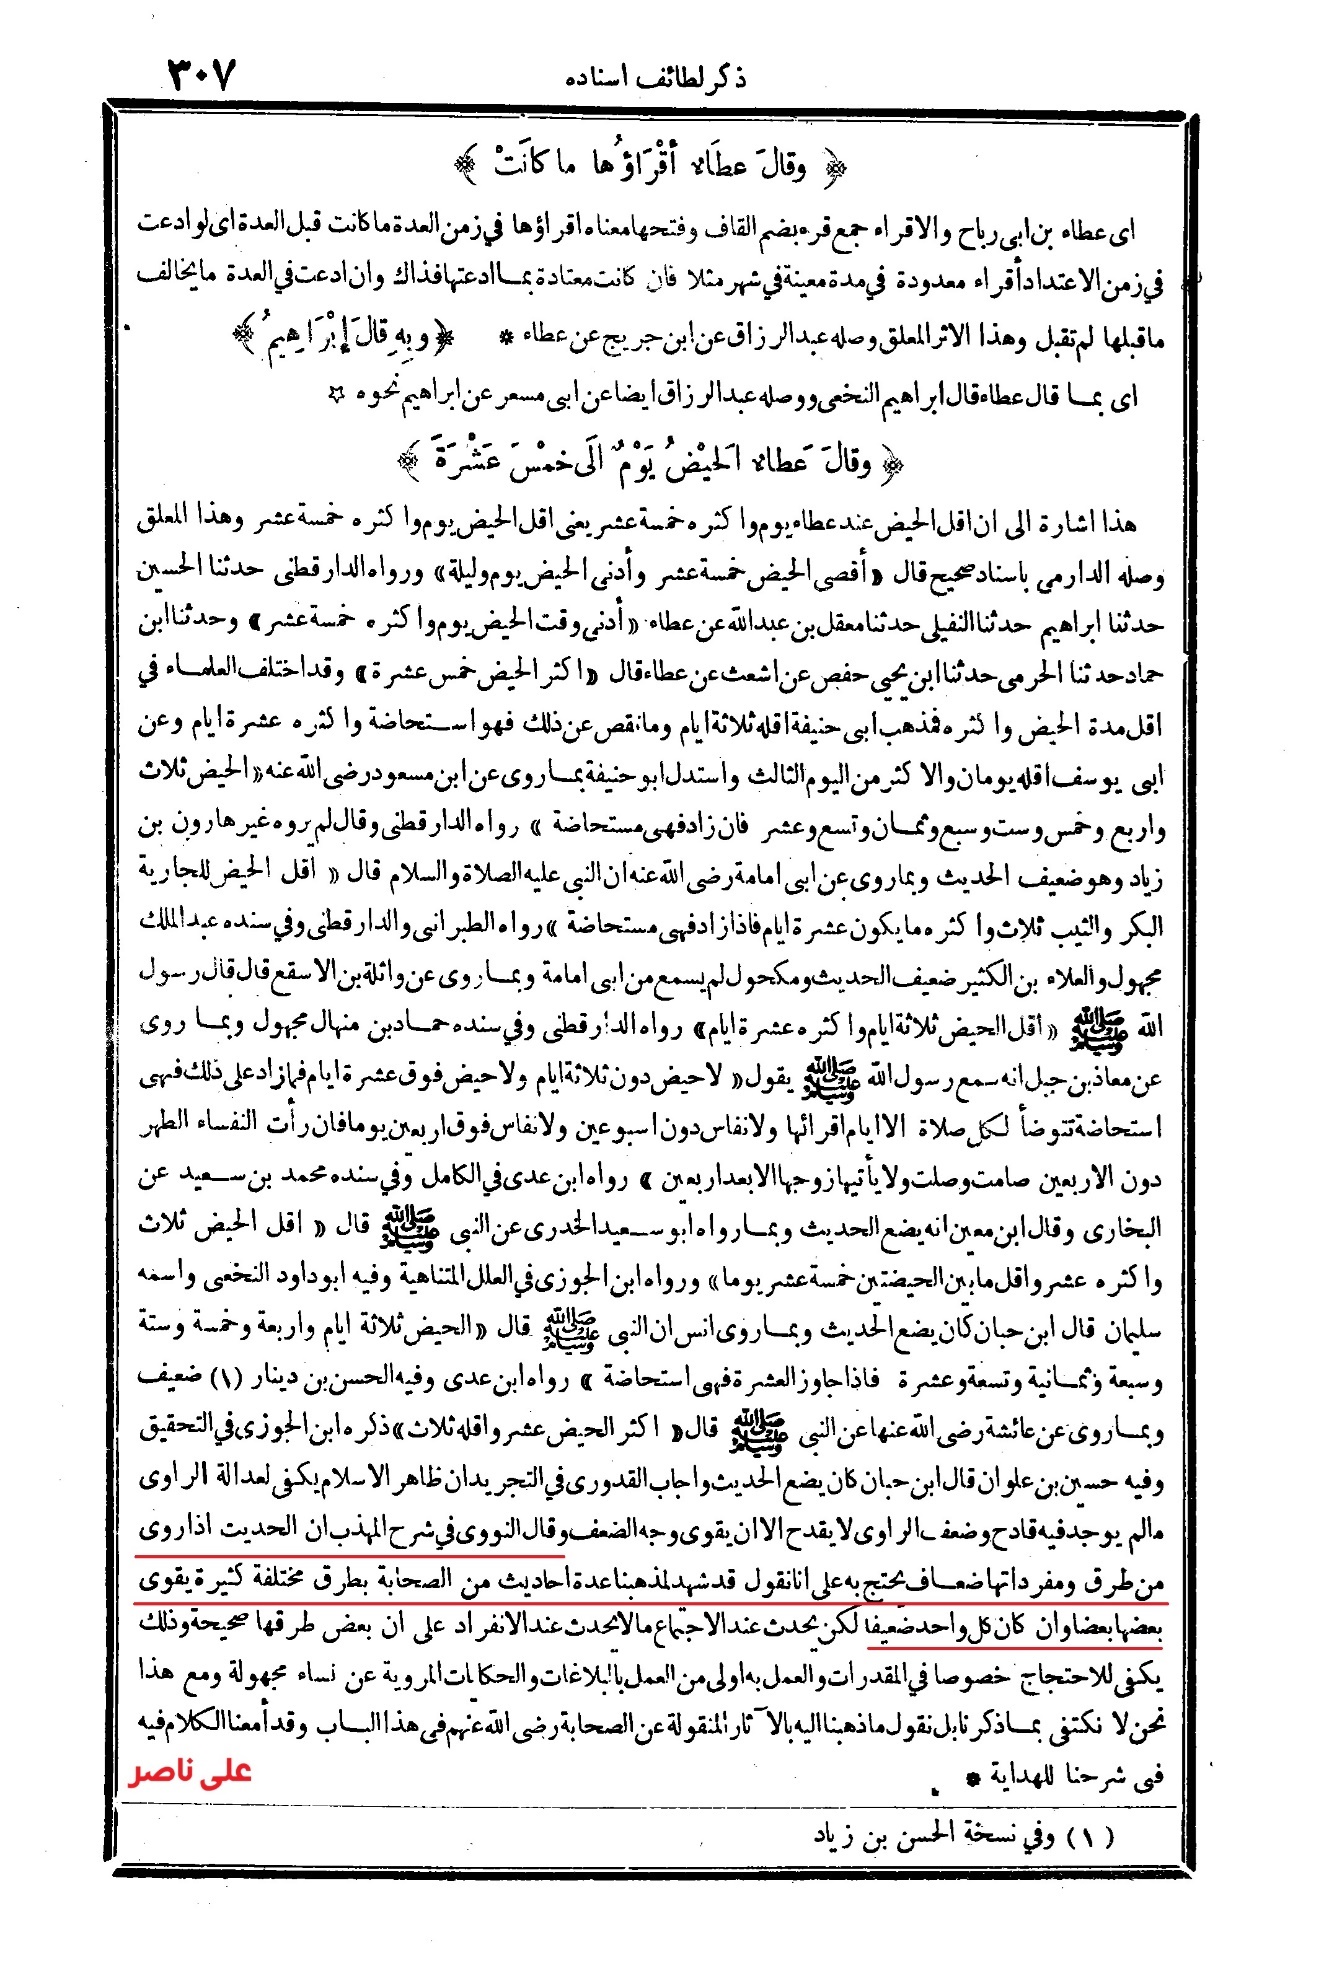 ذكر لطائف اسناده ٣٠٧
﴿ وقالَ عطَاء أقْرَاؤُها ما كانَتْ ﴾
اى عطاء بن ابى رباح والاقراء جمع قرء بضم القاف وفتحها معناه اقراؤها في زمن العدة ما كانت قبل العدة اى لو ادعت
في زمن الاعتداد أقراء معدودة في مدة معينة في شهر مثلا فان كانت معتادة بما ادعتها فذاك وان ادعت في العدة ما يخالف
ما قبلها لم تقبل وهذا الاثر المعلق وصله عبد الرزاق عن ابن جريج عن عطاء * ﴿ وبِهِ قالَ إبْرَاهِيمُ ﴾
اى بما قال عطاء قال ابراهيم النخعى ووصله عبد الرزاق ايضا عن ابى مسعر عن ابراهيم نحوه ☆
﴿ وقالَ عَطاء الحَيْضُ يَوْمٌ الَى خمْسَ عَشْرَةَ ﴾
هذا اشارة الى ان اقل الحيض عند عطاء يوم واكثره خمسة عشر يعنى اقل الحيض يوم واكثره خمسة عشر وهذا المعلق
وصله الدارمى باسناد صحيح قال «أقصى الحيض خمسة عشر وأدنى الحيض يوم وليلة» ورواه الدارقطنى حدثنا الحسين
حدثنا ابراهيم حدثنا النفيلى حدثنا معقل بن عبد الله عن عطاء «أدنى وقت الحيض يوم واكثره خمسة عشر» وحدثنا ابن
حماد حدثنا الحرمى حدثنا ابن يحيى حفص عن اشعث عن عطاء قال «اكثر الحيض خمس عشرة» وقد اختلف العلماء في
اقل مدة الحيض واكثره فمذهب ابى حنيفة اقله ثلاثة ايام وما نقص عن ذلك فهو استحاضة واكثره عشرة ايام وعن
ابى يوسف اقله يومان والاكثر من اليوم الثالث واستدل ابو حنيفة بما روى عن ابن مسعود رضى الله عنه «الحيض ثلاث
واربع وخمس وست وسبع وثمان وتسع وعشر فان زاد فهى مستحاضة» رواه الدارقطنى وقال لم يروه غير هارون بن
زياد وهو ضعيف الحديث وبما روى عن ابى امامة رضى الله عنه ان النبى عليه الصلاة والسلام قال «اقل الحيض للجارية
البكر والثيب ثلاث واكثره ما يكون عشرة ايام فاذا زاد فهى مستحاضة» رواه الطبرانى والدارقطنى وفي سنده عبد الملك
مجهول والعلاء بن الكثير ضعيف الحديث ومكحول لم يسمع من ابى امامة وبما روى عن واثلة بن الاسقع قال قال رسول
الله ﷺ «أقل الحيض ثلاثة ايام واكثره عشرة ايام» رواه الدارقطنى وفي سنده حماد بن منهال مجهول وبما روى
عن معاذ بن جبل انه سمع رسول الله ﷺ يقول «لا حيض دون ثلاثة ايام ولا حيض فوق عشرة ايام فما زاد على ذلك فهى
استحاضة تتوضأ لكل صلاة الا ايام اقرائها ولا نفاس دون اسبوعين ولا نفاس فوق اربعين يوما فان رأت النفساء الطهر
دون الاربعين صامت وصلت ولا يأتيها زوجها الا بعد اربعين» رواه ابن عدى في الكامل وفي سنده محمد بن سعيد عن
البخارى وقال ابن معين انه يضع الحديث وبما رواه ابو سعيد الخدرى عن النبى ﷺ قال «اقل الحيض ثلاث
واكثره عشر واقل ما بين الحيضتين خمسة عشر يوما» ورواه ابن الجوزى في العلل المتناهية وفيه ابو داود النخعى واسمه
سليمان قال ابن حبان كان يضع الحديث وبما روى انس ان النبى ﷺ قال «الحيض ثلاثة ايام واربعة وخمسة وستة
وسبعة وثمانية وتسعة وعشرة فاذا جاوز العشرة فهى استحاضة» رواه ابن عدى وفيه الحسن بن دينار (١) ضعيف
وبما روى عن عائشة رضى الله عنها عن النبى ﷺ قال «اكثر الحيض عشر واقله ثلاث» ذكره ابن الجوزى في التحقيق
وفيه حسين بن علوان قال ابن حبان كان يضع الحديث واجاب القدورى في التجريد ان ظاهر الاسلام يكفى لعدالة الراوى
مالم يوجد فيه قادح وضعف الراوى لا يقدح الا ان يقوى وجه الضعف وقال النووى في شرح المهذب ان الحديث اذا روى
من طرق ومفرداتها ضعاف يحتج به على انا نقول قد شهد لمذهبنا عدة احاديث من الصحابة بطرق مختلفة كثيرة يقوى
بعضها بعضا وان كان كل واحد ضعيفا لكن يحدث عند الاجتماع مالا يحدث عند الانفراد على ان بعض طرقها صحيحة وذلك
يكفى للاحتجاج خصوصا في المقدرات والعمل به اولى من العمل بالبلاغات والحكايات المروية عن نساء مجهولة ومع هذا
نحن لا نكتفى بما ذكرنا بل نقول ما ذهبنا اليه بالآثار المنقولة عن الصحابة رضى الله عنهم في هذا الباب وقد أمعنا الكلام فيه
فى شرحنا للهداية *
على ناصر
(١) وفي نسخة الحسن بن زياد